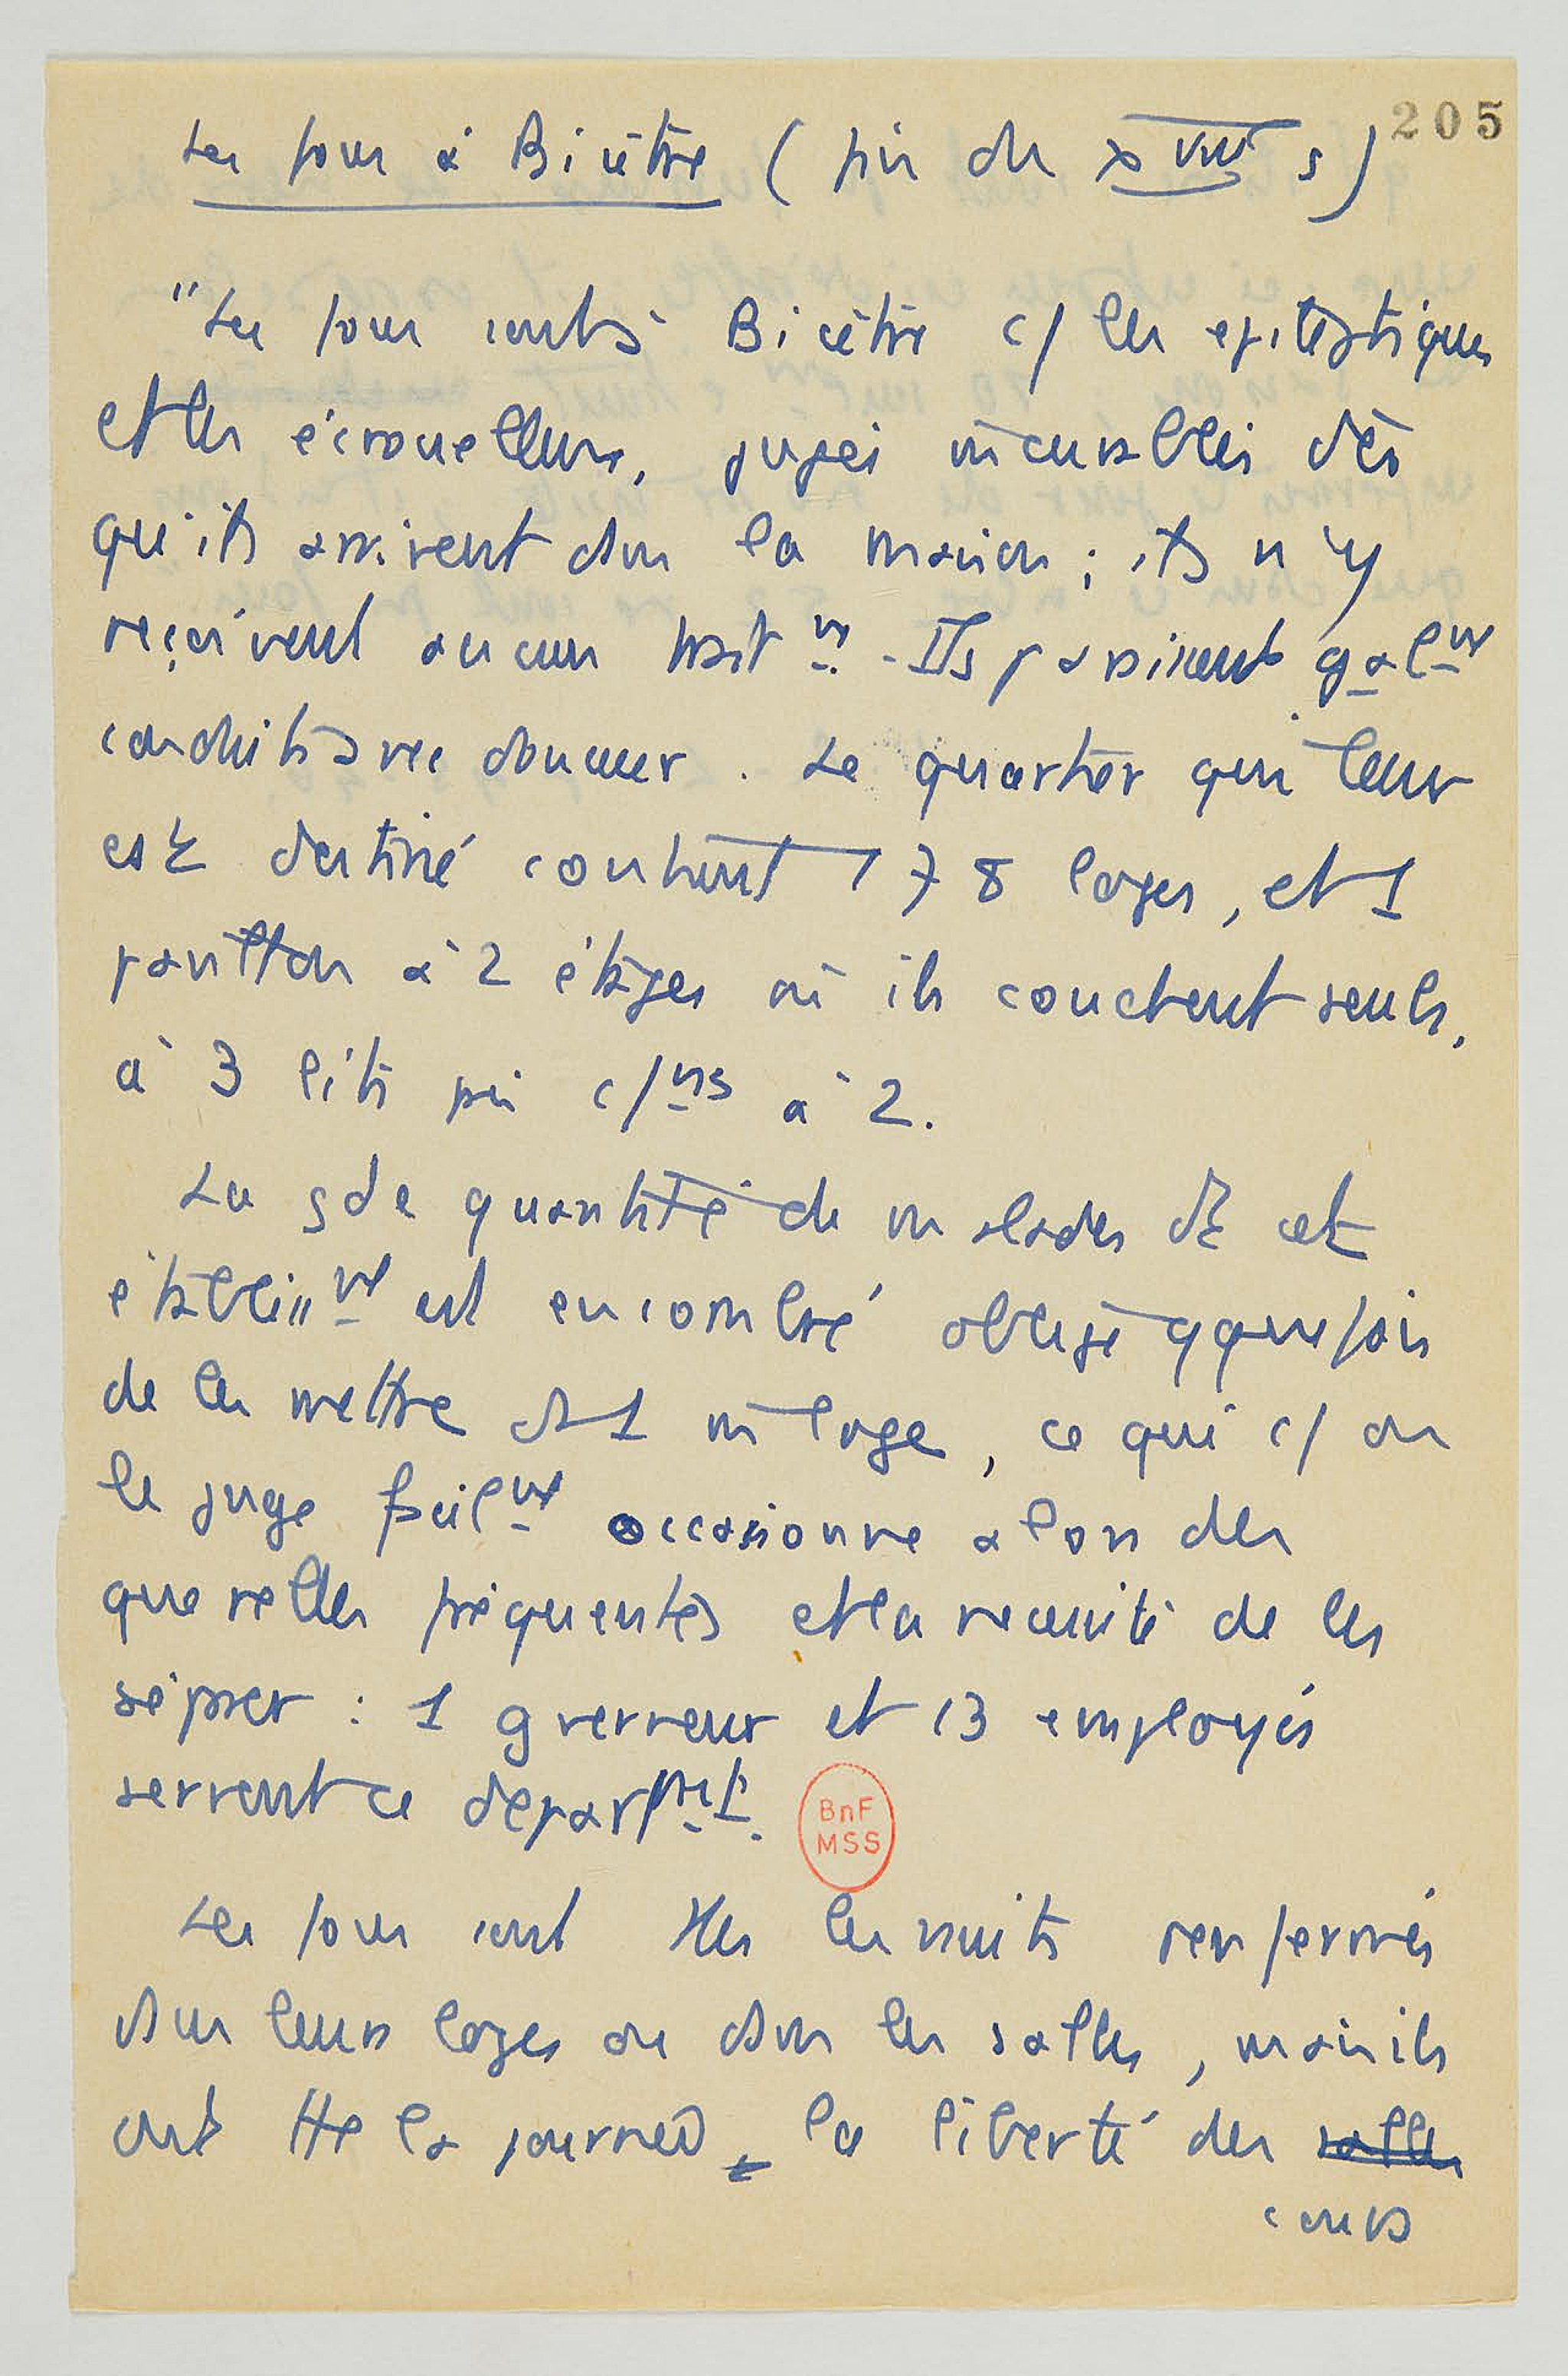 205
Les fous à Bicêtre (fin du XVIIIe s)
"Les fous sont à Bicêtre c/ les epileptiques
et les écrouelleux, jugés incurables dès
qu'ils arrivent dans la maison ; ils n'y
reçoivent aucun trait nt. Ils paraissent galnt
conduits avec douceur. Le quartier qui leur
est destiné contient 178 loges, et 1
pavillon à 2 étages où ils couchent seuls,
à 3 lits près c/ns à 2.
La gde quantité de malades dt cet
établisst est encombré oblige qquefois
de les mettre ds 1 m loge, ce qui c/ on
le juge facilnt occasionne alors des
querelles fréquentes et la necessité de les
séparer : 1 gverneur et 13 employés
servent ce départmt.
BnF
MSS
Les fous sont ttes les nuits renfermés
dans leurs loges ou dans les salles, mais ils
ont tte la journée, la liberté des salles
cours